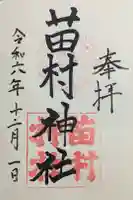 奉拝
苗村神社
令和六年十二月一日
苗村
神社